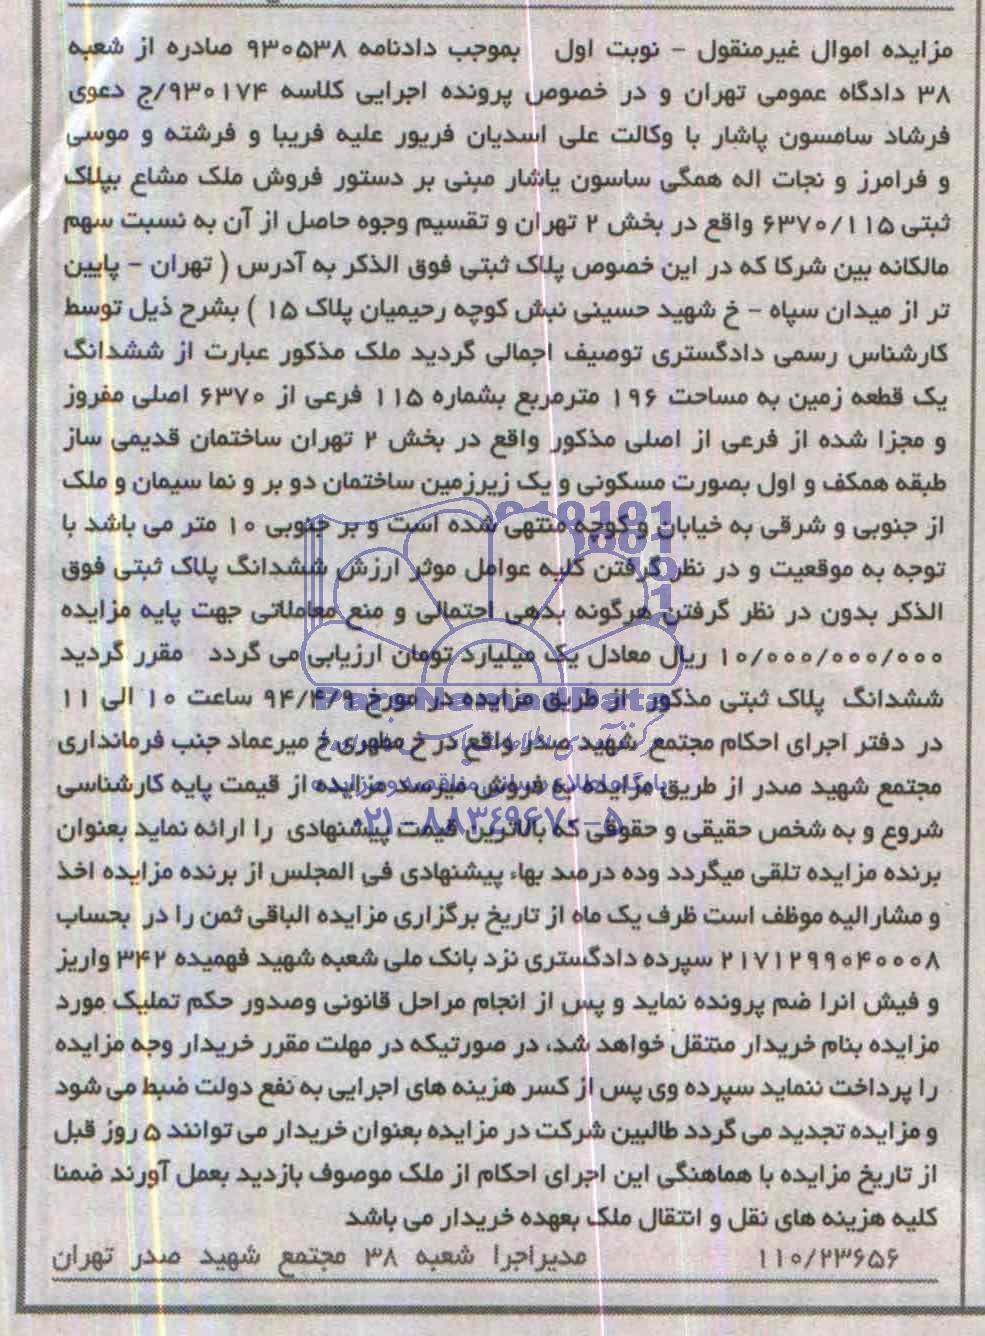 مزایده اموال غیرمنقول – نوبت اول بموجب دادنامه ۹۳۰۵۳۸ صادره از شعبه
۳۸ دادگاه عمومی تهران و در خصوص پرونده اجرایی کلاسه ۹۳۰۱۷۴/ج دعوی
فرشاد سامسون پاشار با وکالت علی اسدیان فریور علیه فریبا و فرشته و موسی
و فرامرز و نجات اله همگی ساسون یاشار مبنی بر دستور فروش ملک مشاع بپلاک
ثبتی ۶۳۷۰/۱۱۵ واقع در بخش ۲ تهران و تقسیم وجوه حاصل از آن به نسبت سهم
مالکانه بین شرکا که در این خصوص پلاک ثبتی فوق الذکر به آدرس ( تهران – پایین
تر از میدان سپاه – خ شهید حسینی نبش کوچه رحیمیان پلاک ۱۵ ) بشرح ذیل توسط
کارشناس رسمی دادگستری توصیف اجمالی گردید ملک مذکور عبارت از ششدانگ
یک قطعه زمین به مساحت ۱۹۶ مترمربع بشماره ۱۱۵ فرعی از ۶۳۷۰ اصلی مفروز
و مجزا شده از فرعی از اصلی مذکور واقع در بخش ۲ تهران ساختمان قدیمی ساز
طبقه همکف و اول بصورت مسکونی و یک زیرزمین ساختمان دو بر و نما سیمان و ملک
از جنوبی و شرقی به خیابان و کوچه منتهی شده است و بر جنوبی ۱۰ متر می باشد با
توجه به موقعیت و در نظر گرفتن کلیه عوامل موثر ارزش ششدانگ پلاک ثبتی فوق
الذکر بدون در نظر گرفتن هرگونه بدهی احتمالی و منع معاملاتی جهت پایه مزایده
۱۰/۰۰۰/۰۰۰/۰۰۰ ریال معادل یک میلیارد تومان ارزیابی می گردد مقرر گردید
ششدانگ پلاک ثبتی مذکور از طریق مزایده در مورخ ۹۴/۴/۹ ساعت ۱۰ الی ۱۱
در دفتر اجرای احکام مجتمع شهید صدر واقع در خ مطهری خ میرعماد جنب فرمانداری
مجتمع شهید صدر از طریق مزایده به فروش میرسد مزایده از قیمت پایه کارشناسی
شروع و به شخص حقیقی و حقوقی که بالاترین قیمت پیشنهادی را ارائه نماید بعنوان
برنده مزایده تلقی میگردد وده درصد بهاء پیشنهادی فی المجلس از برنده مزایده اخذ
و مشارالیه موظف است ظرف یک ماه از تاریخ برگزاری مزایده الباقی ثمن را در بحساب
۲۱۷۱۲۹۹۰۴۰۰۰۸ سپرده دادگستری نزد بانک ملی شعبه شهید فهمیده ۳۴۲ واریز
و فیش انرا ضم پرونده نماید و پس از انجام مراحل قانونی وصدور حکم تملیک مورد
مزایده بنام خریدار منتقل خواهد شد، در صورتیکه در مهلت مقرر خریدار وجه مزایده
را پرداخت ننماید سپرده وی پس از کسر هزینه های اجرایی به نفع دولت ضبط می شود
و مزایده تجدید می گردد طالبین شرکت در مزایده بعنوان خریدار می توانند ۵ روز قبل
از تاریخ مزایده با هماهنگی این اجرای احکام از ملک موصوف بازدید بعمل آورند ضمنا
کلیه هزینه های نقل و انتقال ملک بعهده خریدار می باشد
۱۱۰/۲۳۶۵۶ مدیراجرا شعبه ۳۸ مجتمع شهید صدر تهران
ParsNamadData
پایگاه اطلاع رسانی مناقصه و مزایده
۰۲۱-۸۸۳۴۹۶۷۰-۵